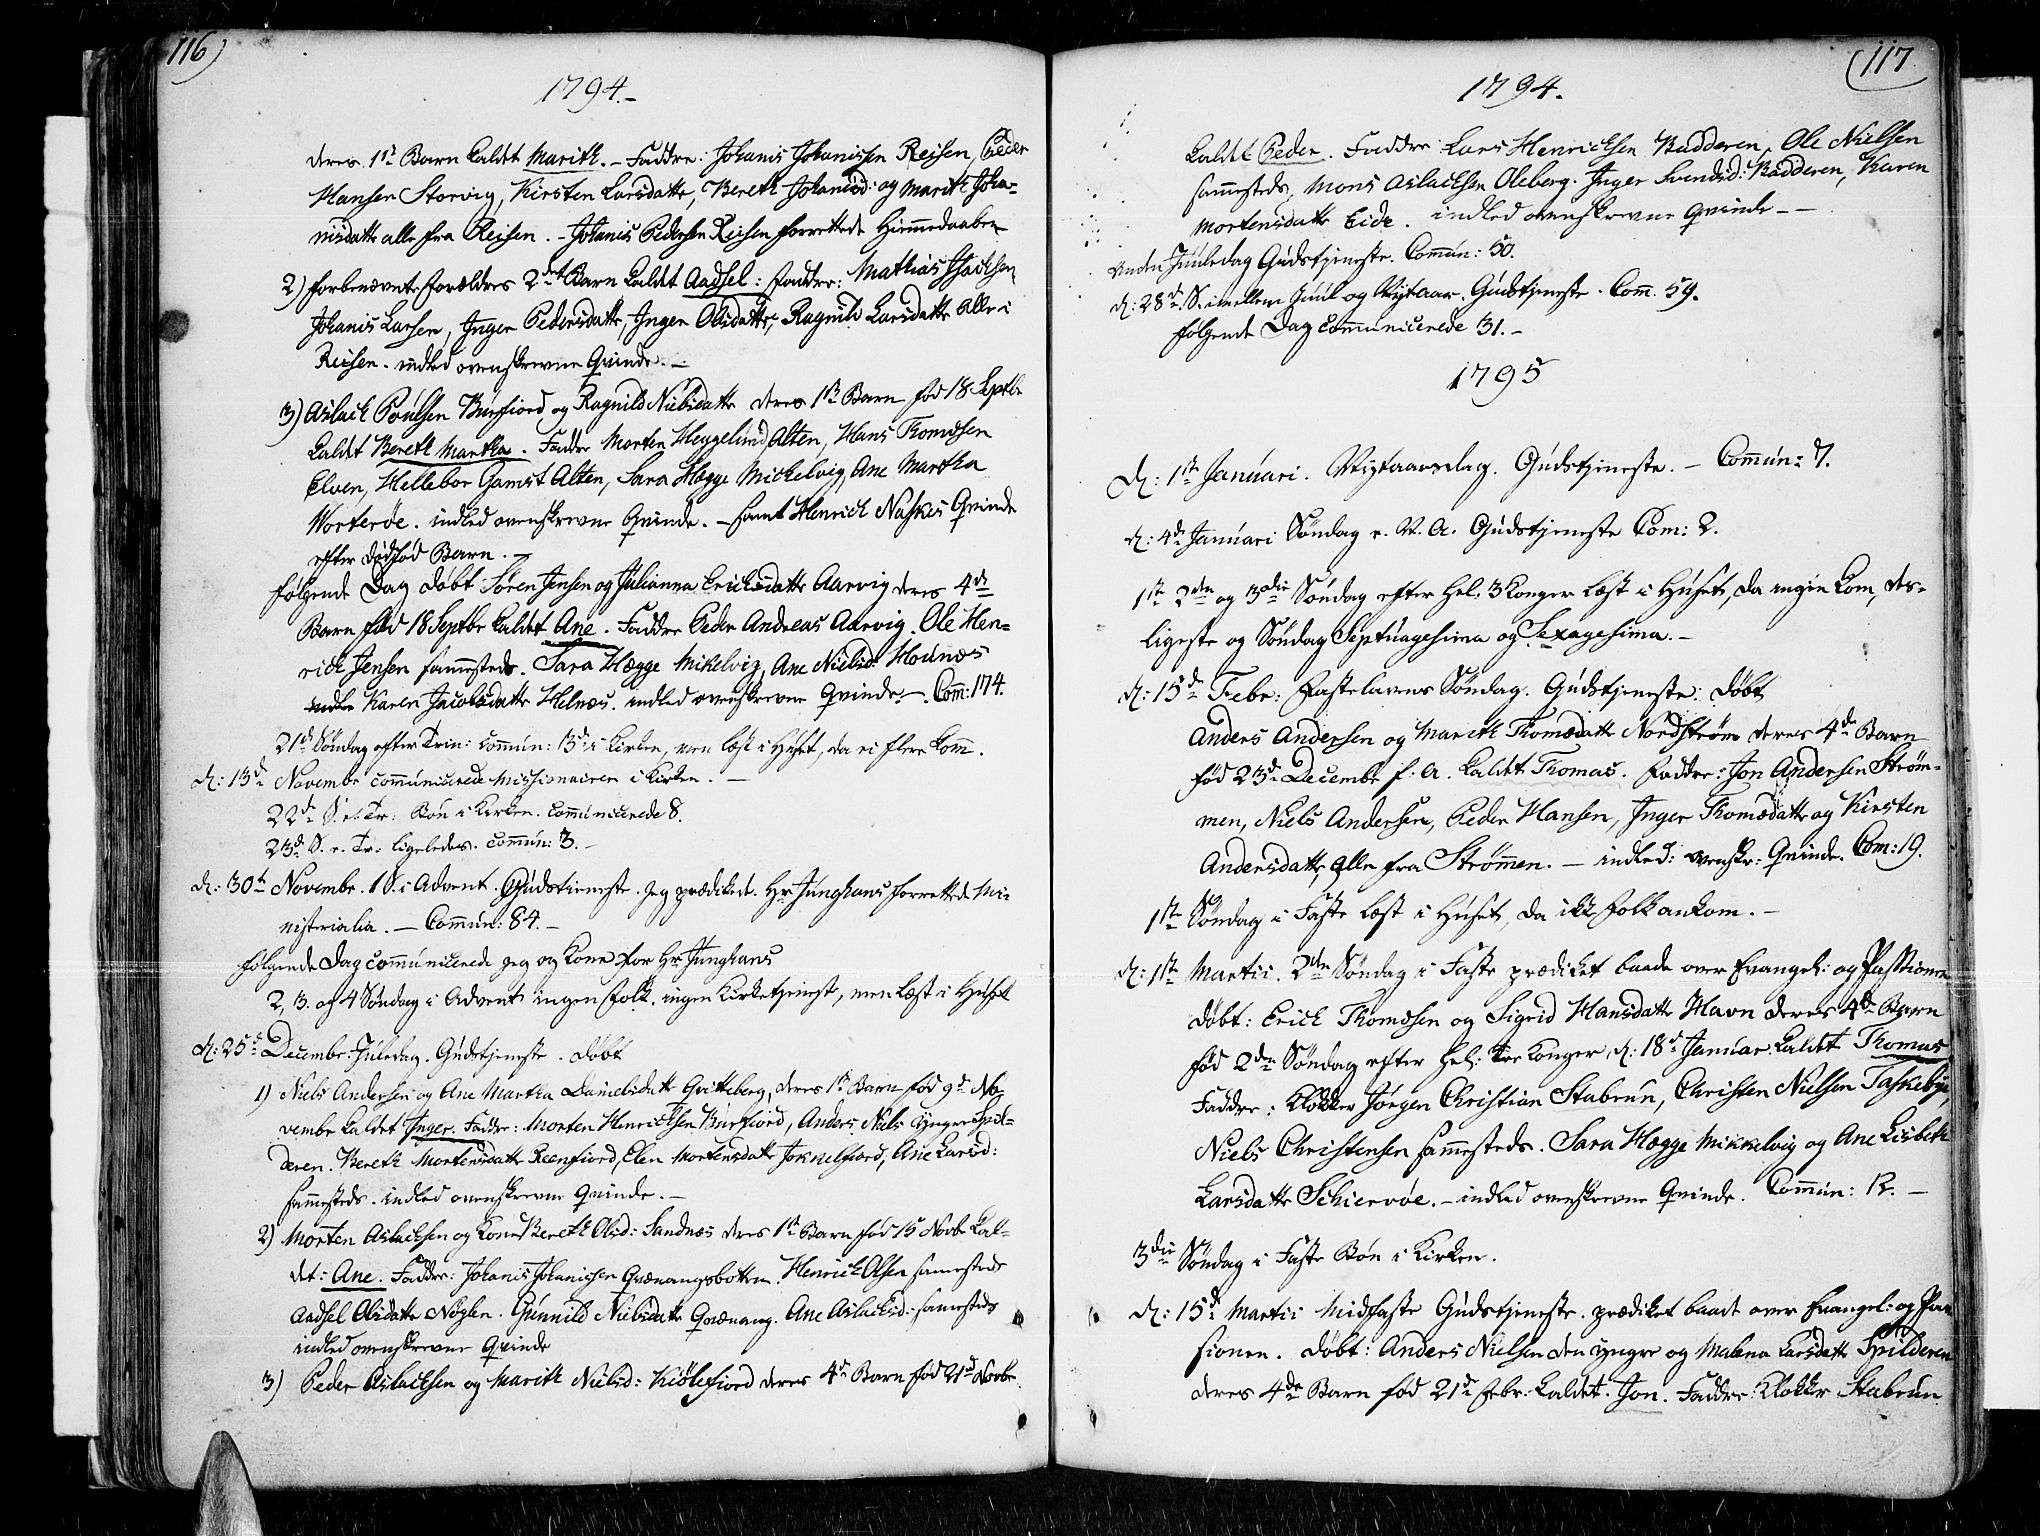 116)
1794.-
deres 1ste Barn kaldet Marith. - Faddre: Johanis Johanissen Reisen, Peder
Hansen Storvig, Kirsten Larsdatte, Bereth Johanisd: og Marith Joha-
nisdatte alle fra Reisen. - Johanis Pedersen Reisen forrettede Hiemmedaaben
2) forbenævnte Forældres 2det Barn kaldet Aadsel: Faddre: Mathias Isachsen
Johanis Larsen, Inger Pedersdatte, Inger Olisdatte, Ragnild Larsdatte alle i
Reisen. indled ovenskrevne Qvinde. -
3) Aslach Poulsen Burfiord og Ragnild Nielsdatte deres 1te Barn fød 18 Septbr
kaldet Bereth Martha. Faddre Morten Heggelund Alten, Hans Thomesen
Elven, Hellebor Gamst Alten, Sara Hegge Mickelvig, Ane Martha
Vorterøe. indled ovenskrevne Qvinde. - samt Henrich Naskes Qvinde
efter dødfød Barn. -
følgende Dag døbt Søren Jensen og Julianna Ericksdatte Aarvig deres 4de
Barn fød 18 Septbr kaldet Ane. Faddre Peder Andreas Aarvig. Ole Hen-
rich Jensen sammesteds. Sara Hegge Mikelvig, Ane Nielsd: Hounæs
Karen Jacobsdatte Helnæs. indled ovenskrevne Qvinde. - Com: 174.
21de Søndag efter Trin: Commun: 13 i Kirken, men læst i Huset, da ei flere kom.
d: 13de Novembr communicerede Missionairen i Kirken. -
22de S. e. Tr: Bøn i Kirken. Communicerede 8.
23de S. e. Tr: ligeledes. Commun: 3. -
d: 30te Novembr. 1 S. i Advent. Gudstjeneste. Jeg prædiked. Hr Junghans forrettede Mi-
nisterialia. - Commun: 84. -
følgende Dag communicerede jeg og Kone for Hr Junghans
2, 3. og 4 Søndag i Advent ingen Folk. ingen Kirketjenest, men læst i Huset
d: 25de Decembr. Juledag. Gudstjeneste. døbt
1) Niels Andersen og Ane Martha Danielsdatte Qvitteberg, deres 1te Barn fød 9de No-
vembr kaldet Inger. Faddre: Morten Henrichsen Burfiord, Anders Niels: Yngre Spil-
deren. Bereth Mortensdatte Reenfiord, Elen Mortensdatte Jokkelfiord, Ane Larsd:
sammesteds. indled ovenskrevne Qvinde. -
2) Morten Aslachsen og Kone Bereth Olsd: Sandnæs deres 1te Barn fød 15 Novbr kal-
det: Ane. Faddre: Johanis Johanissen Qvænangsbotten. Henrich Olsen samesteds
Aadsel Olsdatte Nøglen. Gunnild Nielsdatte Qvænang. Ane Aslachsd: samesteds
indled ovenskrevne Qvinde
3) Peder Aslachsen og Marith Nielsd: Kiølefiord deres 4de Barn fød 21de Novbr
(117
1794.
kaldet Peder. Faddre Lars Henrichsen Badderen, Ole Nielsen
sammesteds, Mons Aslachsen Oleberg. Inger Svendsd: Badderen, Karen
Mortensdatte Eide. indled ovenskrevne Qvinde - -
Anden Juuledag Gudstjeneste. Commun: 50.
d: 28de S. imellem Juul og Nytaar. Gudstjeneste. Com. 59.
følgende Dag communicerede 31. -
1795
d: 1ste Januari. Nytaarsdag. Gudstjeneste. - Commun: 7.
d: 4de Januari Søndag e. N. A. Gudstjeneste Com: 2.
1ste 2den og 3die Søndag efter Hel: 3 Konger læst i Huset, da ingen kom, des-
ligeste og Søndag Septuagesima og Sexagesima. -
d: 15de Febr: Fastelavens Søndag. Gudstjeneste: døbt
Anders Andersen og Marith Thomædatte Nordstrøm deres 4de Barn
fød 23de Decembr f. A. kaldet Thomas. Faddre: Jon Andersen Strøm-
men, Niels Andersen, Peder Hansen, Inger Thomædatte og Kirsten
Andersdatte, alle fra Strømmen. - indled: ovenskr: Qvinde. Com: 19.
1ste Søndag i Faste læst i Huset, da ikke Folk ankom. -
d: 1ste Martii. 2den Søndag i Faste prædiket baade over Evangel: og Passionen
døbt: Erich Thomesen og Sigrid Hansdatte Havn deres 4de Barn
fød 2den Søndag efter Hel: tre Konger, d: 18de Januar. kaldet Thomas
Faddre: Klokker Jørgen Christian Stabrun, Christen Nielsen Taskebye,
Niels Christensen sammesteds. Sara Hegge Mikkelvig og Ane Lisbeth
Larsdatte Schiervøe. - indled ovenskrevne Qvinde. Commun: 12. -
3die Søndag i Faste Bøn i Kirken.
d: 15de Martii Midfaste Gudstjeneste. prædiket baade over Evangel: og Pas-
sionen. Døbt: Anders Nielsen den yngre og Malena Larsdatte Spilderen
deres 4de Barn fød 21de Febr: kaldet. Jon. Faddre: Klokker Stabrun